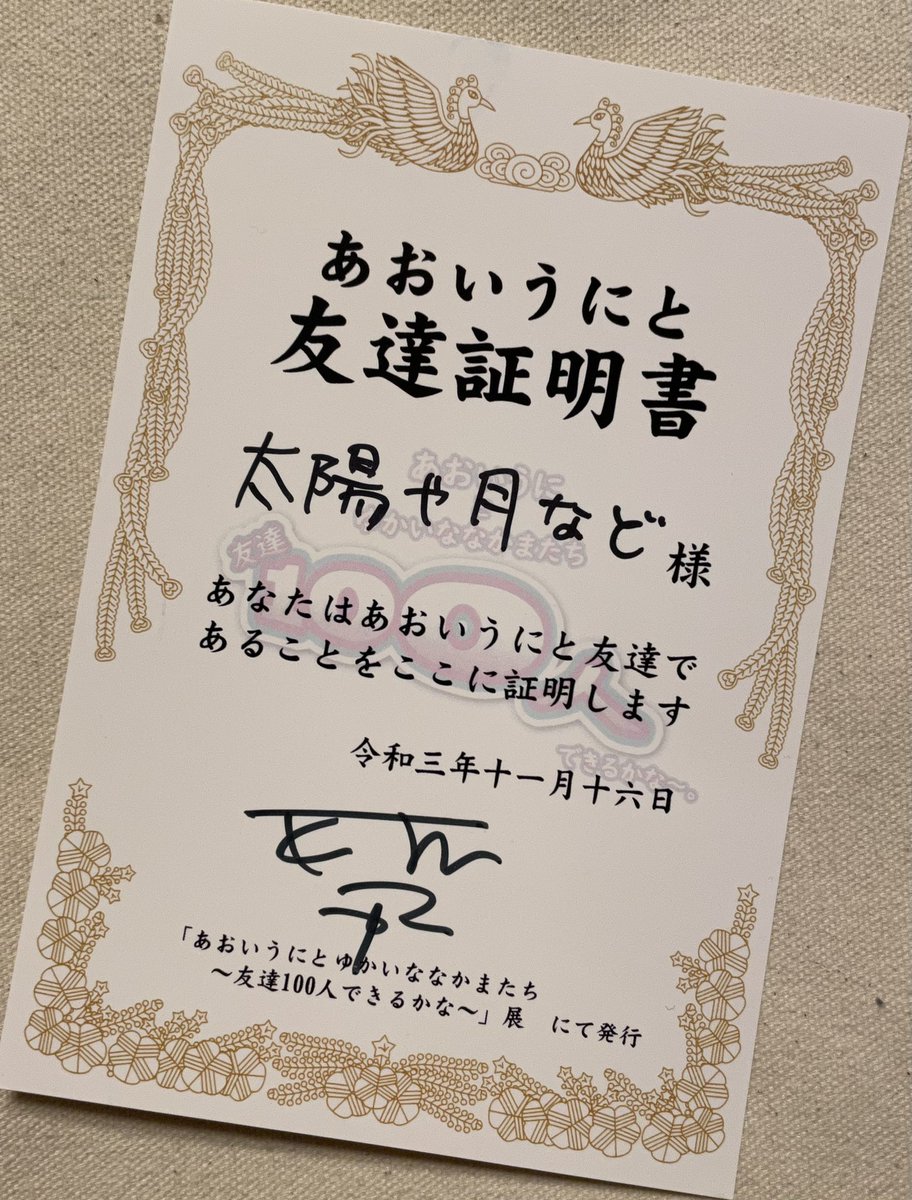 あおいうにと
友達証明書
太陽や月など 様
あおいうに
と
ゆかいななかまたち
友達
100人
できるかな〜。
あなたはあおいうにと友達で
あることをここに証明します
令和三年十一月十六日
「あおいうにとゆかいななかまたち
〜友達100人できるかな〜」展 にて発行